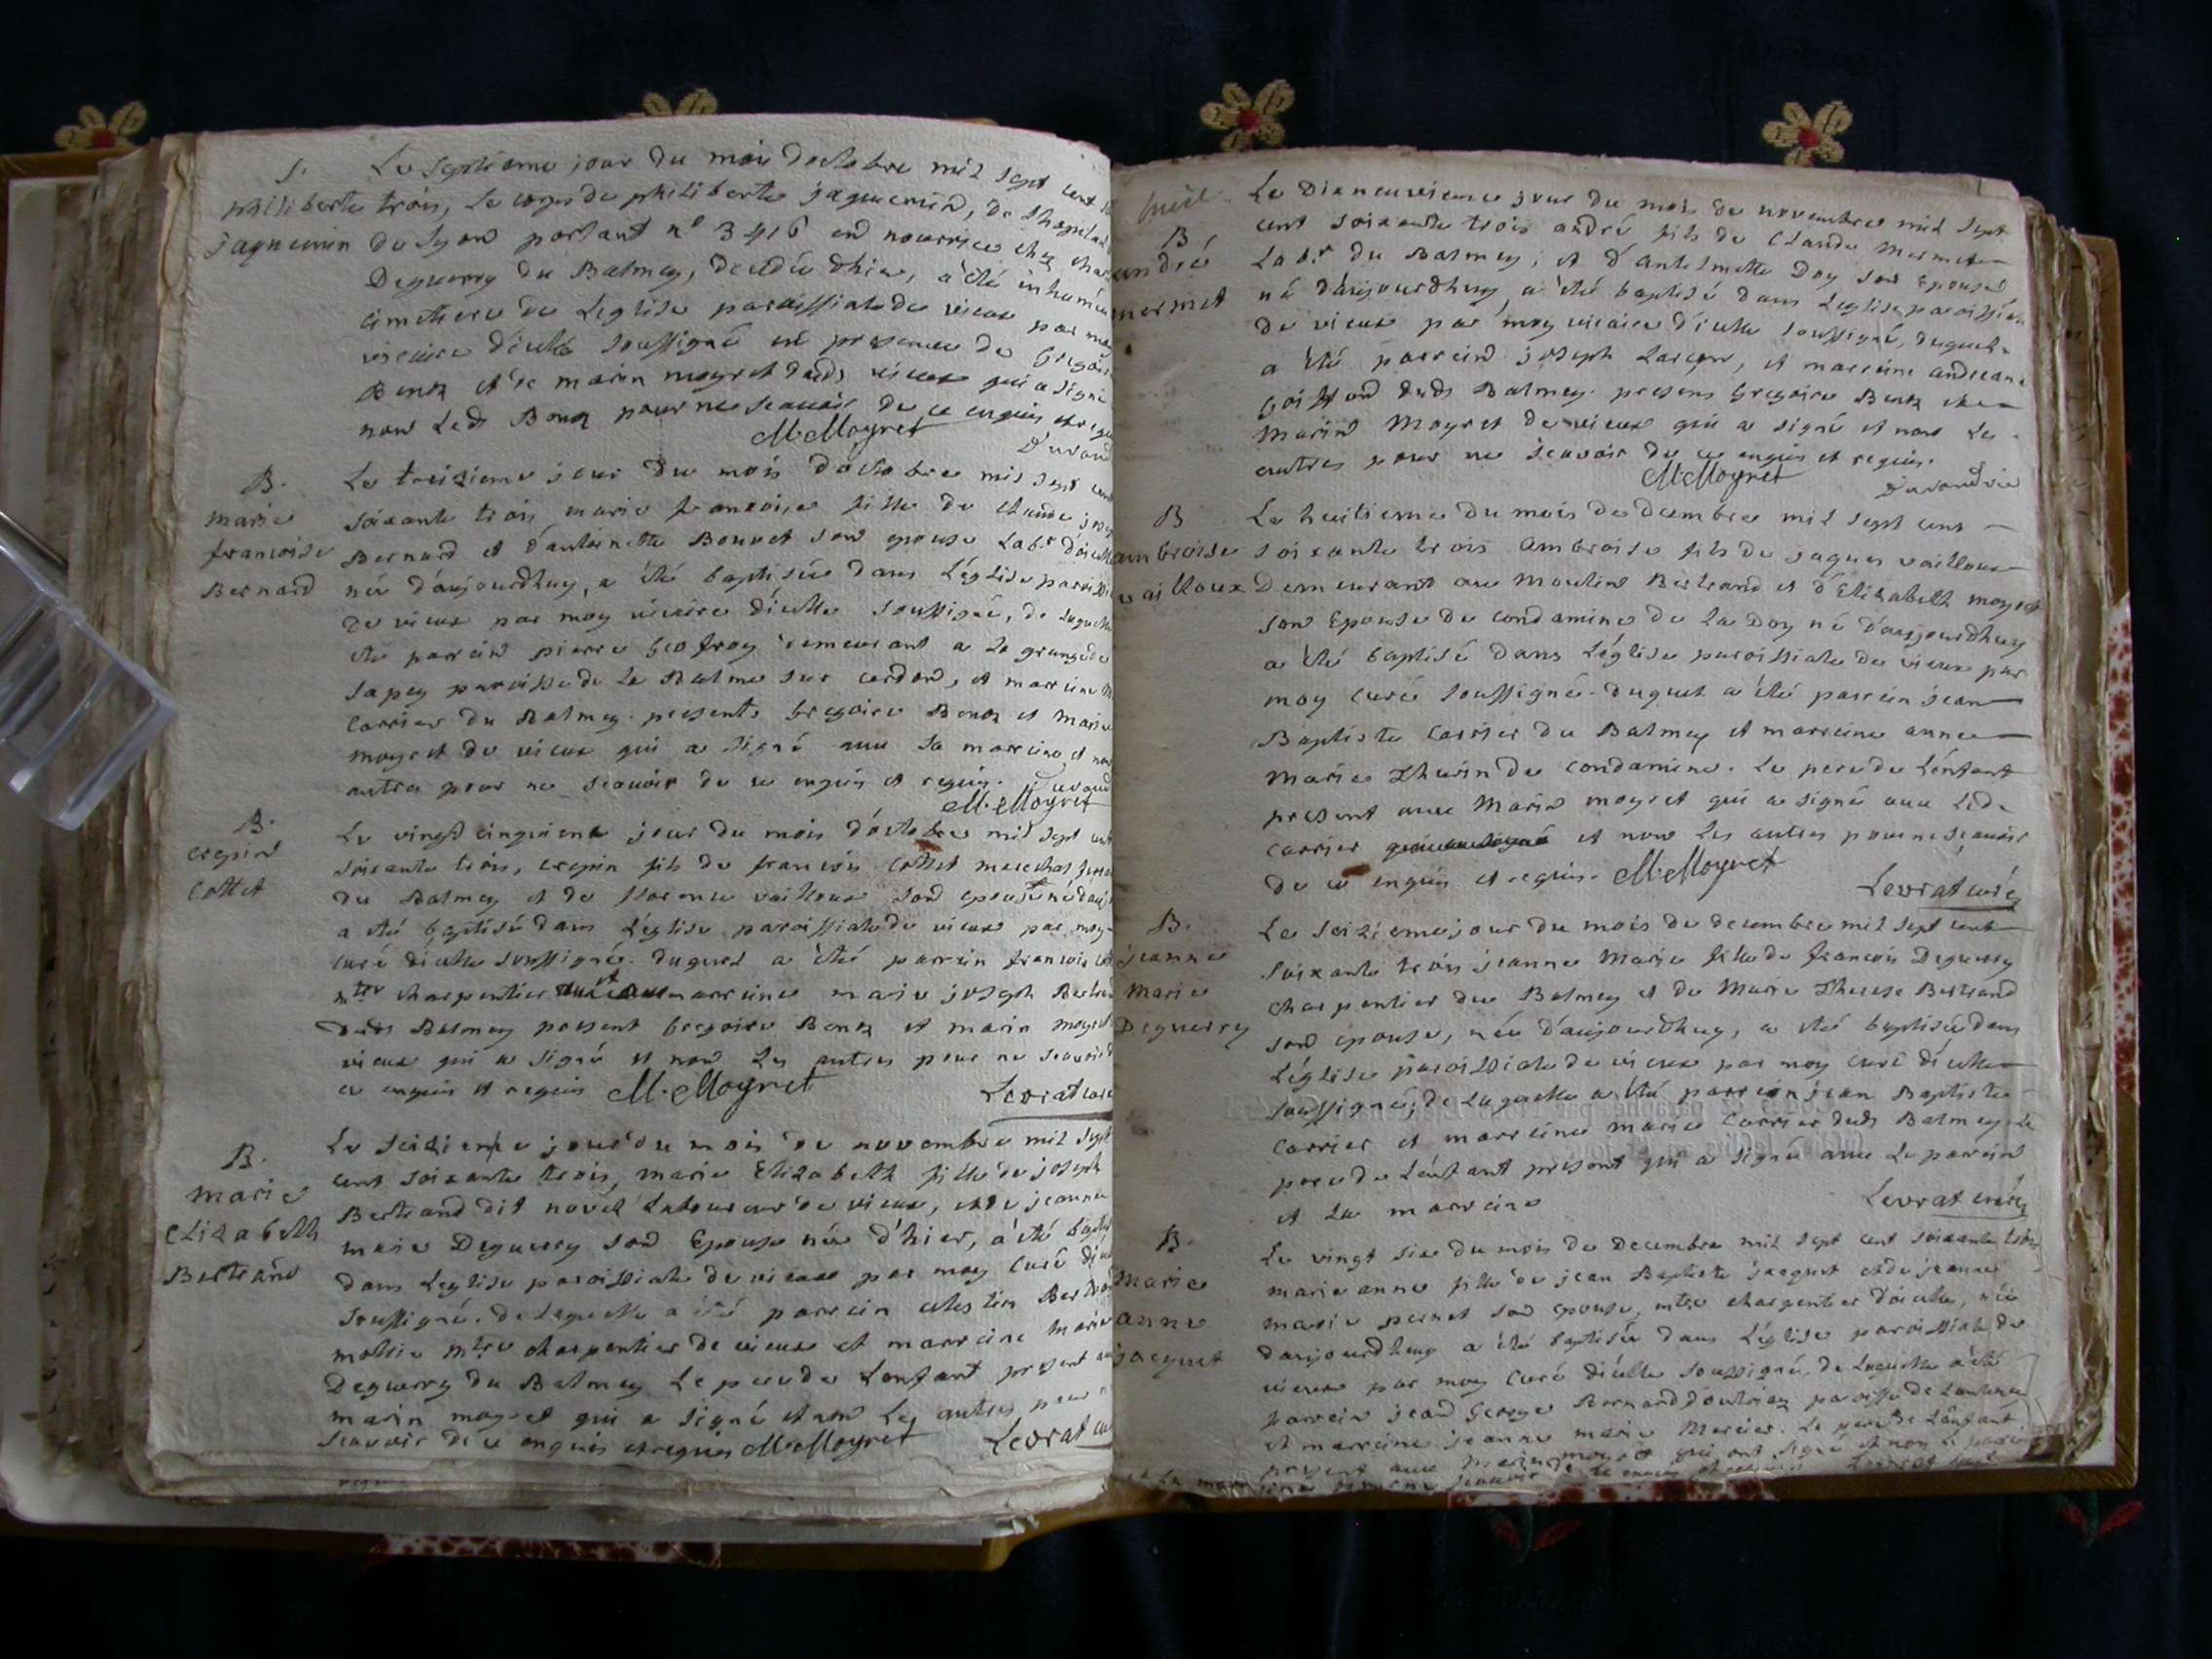 S.
philiberte
jaquemin
Le septieme jour du mois doctobre mil sept cent
trois, Le corps de philiberte jaquemin, de Lhopital
de Lyon portant n° 3416 en nourrice chez
Deguerry du Balmey, decedée dhier, a été inhumée
cimetiere de Leglise paroissiale de vieux par moy
vicaire d'icelle soussigné en presence de gregoire
Benoz et de marin moyret dudt vieux qui a signé
non Ledt Benoz pour ne scavoir de ce enquis et requis
M. Moyret
Durand
B.
marie
francoise
Bernard
Le treizieme jour du mois d'octobre mil sept cent
soixante trois marie francoise fille de claude joseph
Bernard et d'antoinette Bouvet son epouse Labr d'icelle
née d'aujourdhuy, a été baptisée dans L'eglise paroissi
de vieux par moy vicaire d'icelle soussigné, de Laquelle
été parrein pierre geofroy demeurant a La grange de
sapey paroisse de La Balme sur cerdon, et marreine
Carrier du Balmey. presents gregoire Benoz et marin
moyret de vieux qui a signé avec La marreine et non
autres pour ne scavoir de ce enquis et requis. Durand
M. Moyret
B.
crepin
Cottet
Le vingt cinquieme jour du mois d'octobre mil sept cent
soixante trois, crepin fils de francois Cottet marechal
du Balmey et de vailloux son epouse né
a été baptisé dans L'eglise paroissiale de vieux par moy
curé d'icelle soussigné. duquel a été parrein francois
mtre charpentier et marreine marie joseph Bertrand
dudt Balmey present gregoire Benoz et marin moyret
vieux qui a signé et non Les autres pour ne scavoir
ce enquis et requis M. Moyret
Levrat curé
B.
marie
Elizabeth
Bertrand
Le seizieme jour du mois de novembre mil sept
cent soixante trois, marie Elizabeth fille de joseph
Bertrand dit novel Laboureur de vieux, et de jeanne
marie Deguerry son Epouse née d'hier, a été
dans Leglise paroissiale de vieux par moy Curé
soussigné. de Laquelle a été parrein celestin Bertrand
mtre charpentier de vieux et marreine marie
Deguerry du Balmey Le pere de Lenfant present
marin moyret qui a signé et non Les autres pour
scavoir de ce enquis et requis M. Moyret
Levrat
B
andré
mermet
Le dixneuvieme jour du mois de novembre mil sept
cent soixante trois andré fils de Claude Mermet
Labr du Balmey, et d'antelmette Doy son Epouse
né daujourdhuy a été baptisé dans Leglise paroissiale
de vieux par moy vicaire d'icelle soussigné, duquel
a été parrein joseph, et marreine andreanne
dudt Balmey. presens gregoire Benoz et
Marin Moyret de vieux qui a signé et non Les
autres pour ne scavoir de ce enquis et requis.
M. Moyret
Durand vic
B
ambroise
vailloux
Le huitieme du mois de decembre mil sept cent
soixante trois ambroise fils de jaques vailloux
Demeurant au Moulin Bertrand et d'Elizabeth moyret
son Epouse de condamine de La Doy né d'aujourdhuy
a été baptisé dans L'église paroissiale de vieux par
moy curé soussigné. duquel a été parrein jean
Baptiste Carrier du Balmey et marreine anne
Marie Thurin de condamine. Le pere de L'enfant
present avec Marin moyret qui a signé avec Led.
Carrier et non Les autres pour ne scavoir
de ce enquis et requis. M. Moyret
Levrat curé
B.
jeanne
Marie
Deguerry
Le seizieme jour du mois de decembre mil sept cent
soixante trois jeanne Marie fille de francois Deguerry
charpentier du Balmey et de Marie Therese Bertrand
son epouse, née d'aujourdhuy, a été baptisée dans
L'église paroissiale de vieux par moy curé d'icelle
soussigné, de Laquelle a été parrein jean Baptiste
Carrier et marreine marie Carrier dudt Balmey Le
pere de Lenfant present qui a signé avec Le parrein
et La marreine
Levrat curé
B.
Marie
anne
jacquet
Le vingt six du mois de Decembre mil sept cent soixante trois
marie anne fille de jean Baptiste jacquet et de jeanne
marie pernet son epouse, mtre charpentier d'icelle, née
daujourdhuy a été baptisée dans L'église paroissiale de
vieux par moy Curé d'icelle soussigné, de Laquelle a été
parrein jean George Bernard paroisse de
et marreine jeanne marie Mercier. Le pere de L'enfant
present avec Marin moyret qui ont signé et non Le parrein
et La marreine pour ne scavoir de ce enquis et requis Levrat curé